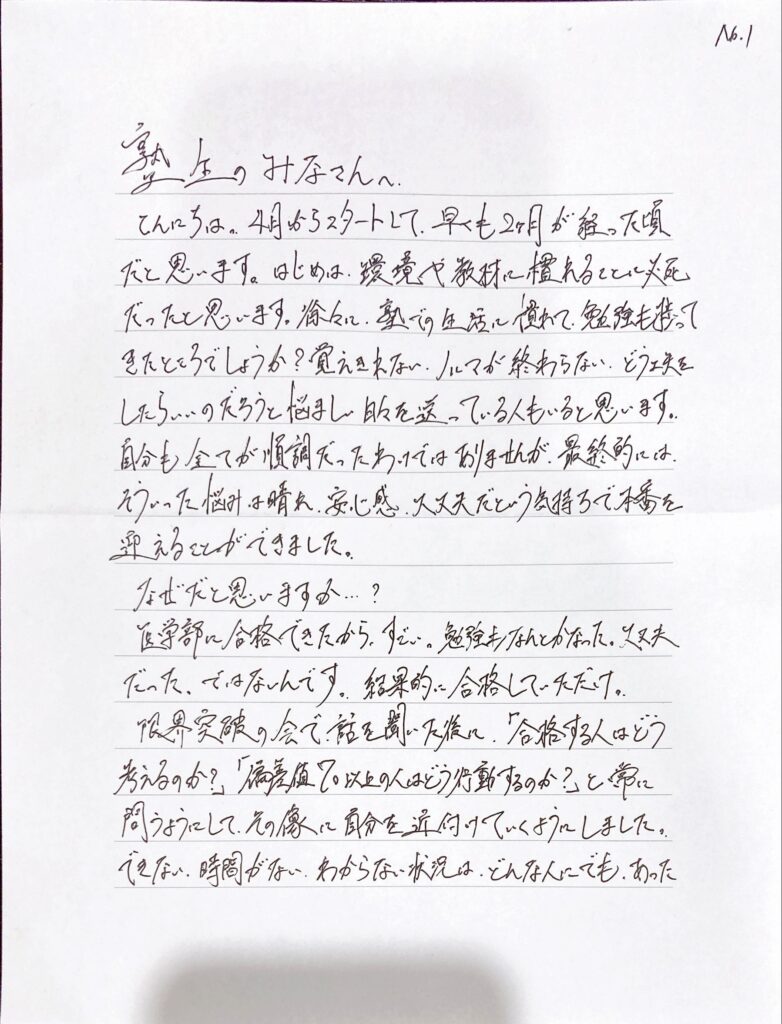 No.1
塾生のみなさんへ.
こんにちは。4月からスタートして、早くも2ヶ月が経った頃
だと思います。はじめは、環境や教材に慣れることに必死
だったと思います。徐々に、塾での生活に慣れて、勉強も捗って
きたところでしょうか?覚えきれない、ノルマが終わらない、どう工夫を
したらいいのだろうと悩ましい日々を送っている人もいると思います。
自分も全てが順調だったわけではありませんが、最終的には、
そういった悩みは晴れ、安心感、大丈夫だという気持ちで本番を
迎えることができました。
なぜだと思いますか…?
医学部に合格できたから、すごい。勉強もなんとかなった。大丈夫
だった、ではないんです。結果的に合格していただけ。
限界突破の会で、話を聞いた後に、「合格する人はどう
考えるのか?」「偏差値70以上の人はどう行動するのか?」と常に
問うようにして、その像に自分を近付けていくようにしました。
できない、時間がない、わからない状況は、どんな人にでも、あった